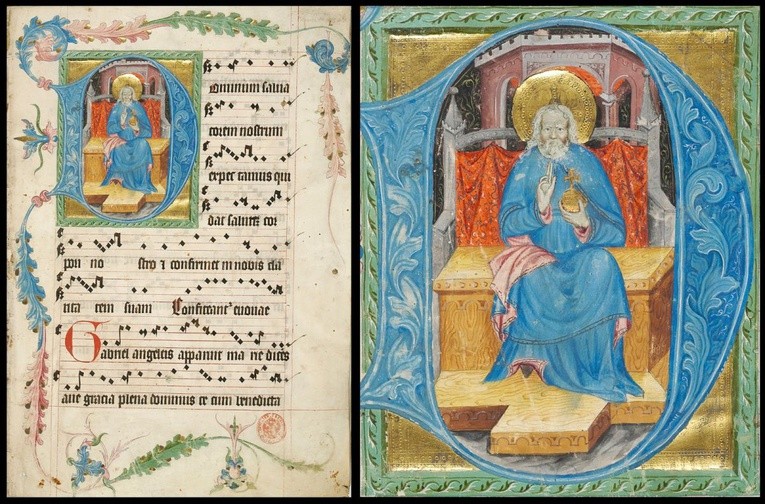 Dominum salua
torem nostrum
expec tamus qui
dat salutē cor
pori no stro ⁊ confirmet in nobis cla
rita tem suam euouae
Gabriel angelus apparuit ma rie dicēs
aue gracia plena dominus te cum benedicta